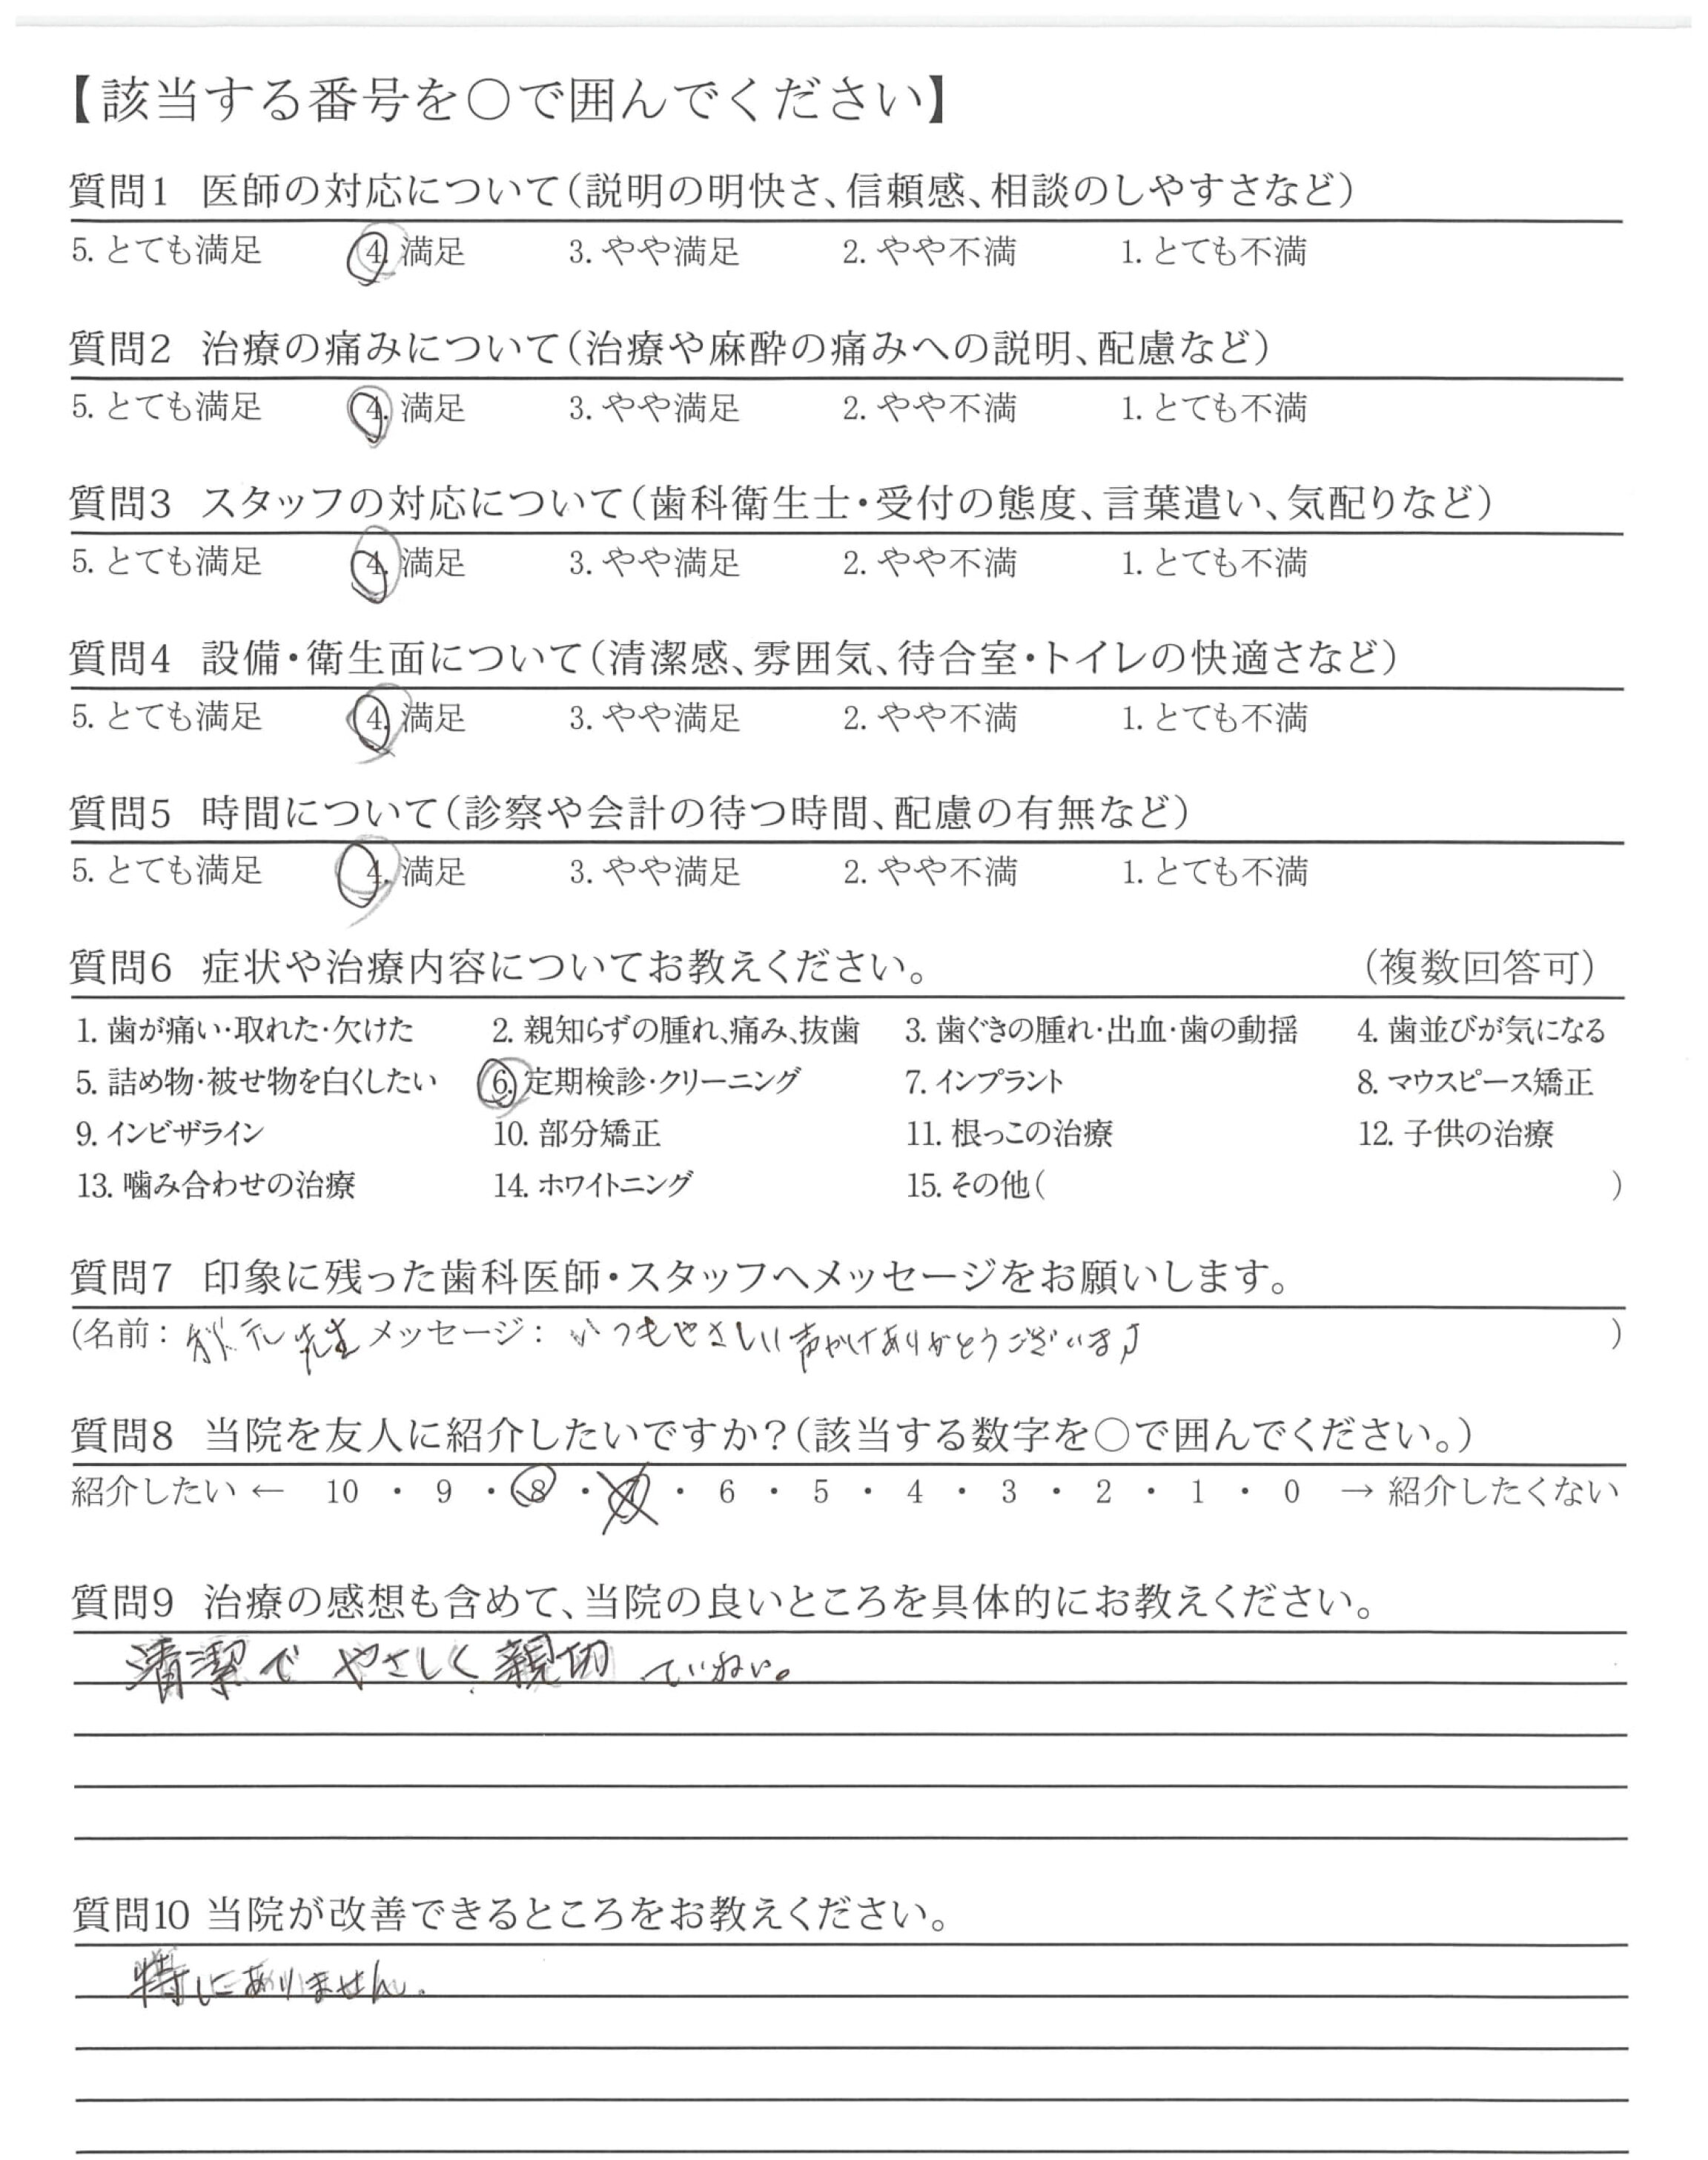 【該当する番号を○で囲んでください】
質問1 医師の対応について(説明の明快さ、信頼感、相談のしやすさなど)
5. とても満足 4. 満足 3. やや満足 2. やや不満 1. とても不満
質問2 治療の痛みについて(治療や麻酔の痛みへの説明、配慮など)
5. とても満足 4. 満足 3. やや満足 2. やや不満 1. とても不満
質問3 スタッフの対応について(歯科衛生士・受付の態度、言葉遣い、気配りなど)
5. とても満足 4. 満足 3. やや満足 2. やや不満 1. とても不満
質問4 設備・衛生面について(清潔感、雰囲気、待合室・トイレの快適さなど)
5. とても満足 4. 満足 3. やや満足 2. やや不満 1. とても不満
質問5 時間について(診察や会計の待つ時間、配慮の有無など)
5. とても満足 4. 満足 3. やや満足 2. やや不満 1. とても不満
質問6 症状や治療内容についてお教えください。 (複数回答可)
1. 歯が痛い・取れた・欠けた 2. 親知らずの腫れ、痛み、抜歯 3. 歯ぐきの腫れ・出血・歯の動揺 4. 歯並びが気になる
5. 詰め物・被せ物を白くしたい 6. 定期検診・クリーニング 7. インプラント 8. マウスピース矯正
9. インビザライン 10. 部分矯正 11. 根っこの治療 12. 子供の治療
13. 噛み合わせの治療 14. ホワイトニング 15. その他( )
質問7 印象に残った歯科医師・スタッフへメッセージをお願いします。
(名前: 先生 メッセージ: いつもやさしい声かけありがとうございます )
質問8 当院を友人に紹介したいですか?(該当する数字を○で囲んでください。)
紹介したい ← 10 ・ 9 ・ 8 ・ 7 ・ 6 ・ 5 ・ 4 ・ 3 ・ 2 ・ 1 ・ 0 → 紹介したくない
質問9 治療の感想も含めて、当院の良いところを具体的にお教えください。
清潔で やさしく 親切 ていねい。
質問10 当院が改善できるところをお教えください。
特にありません。